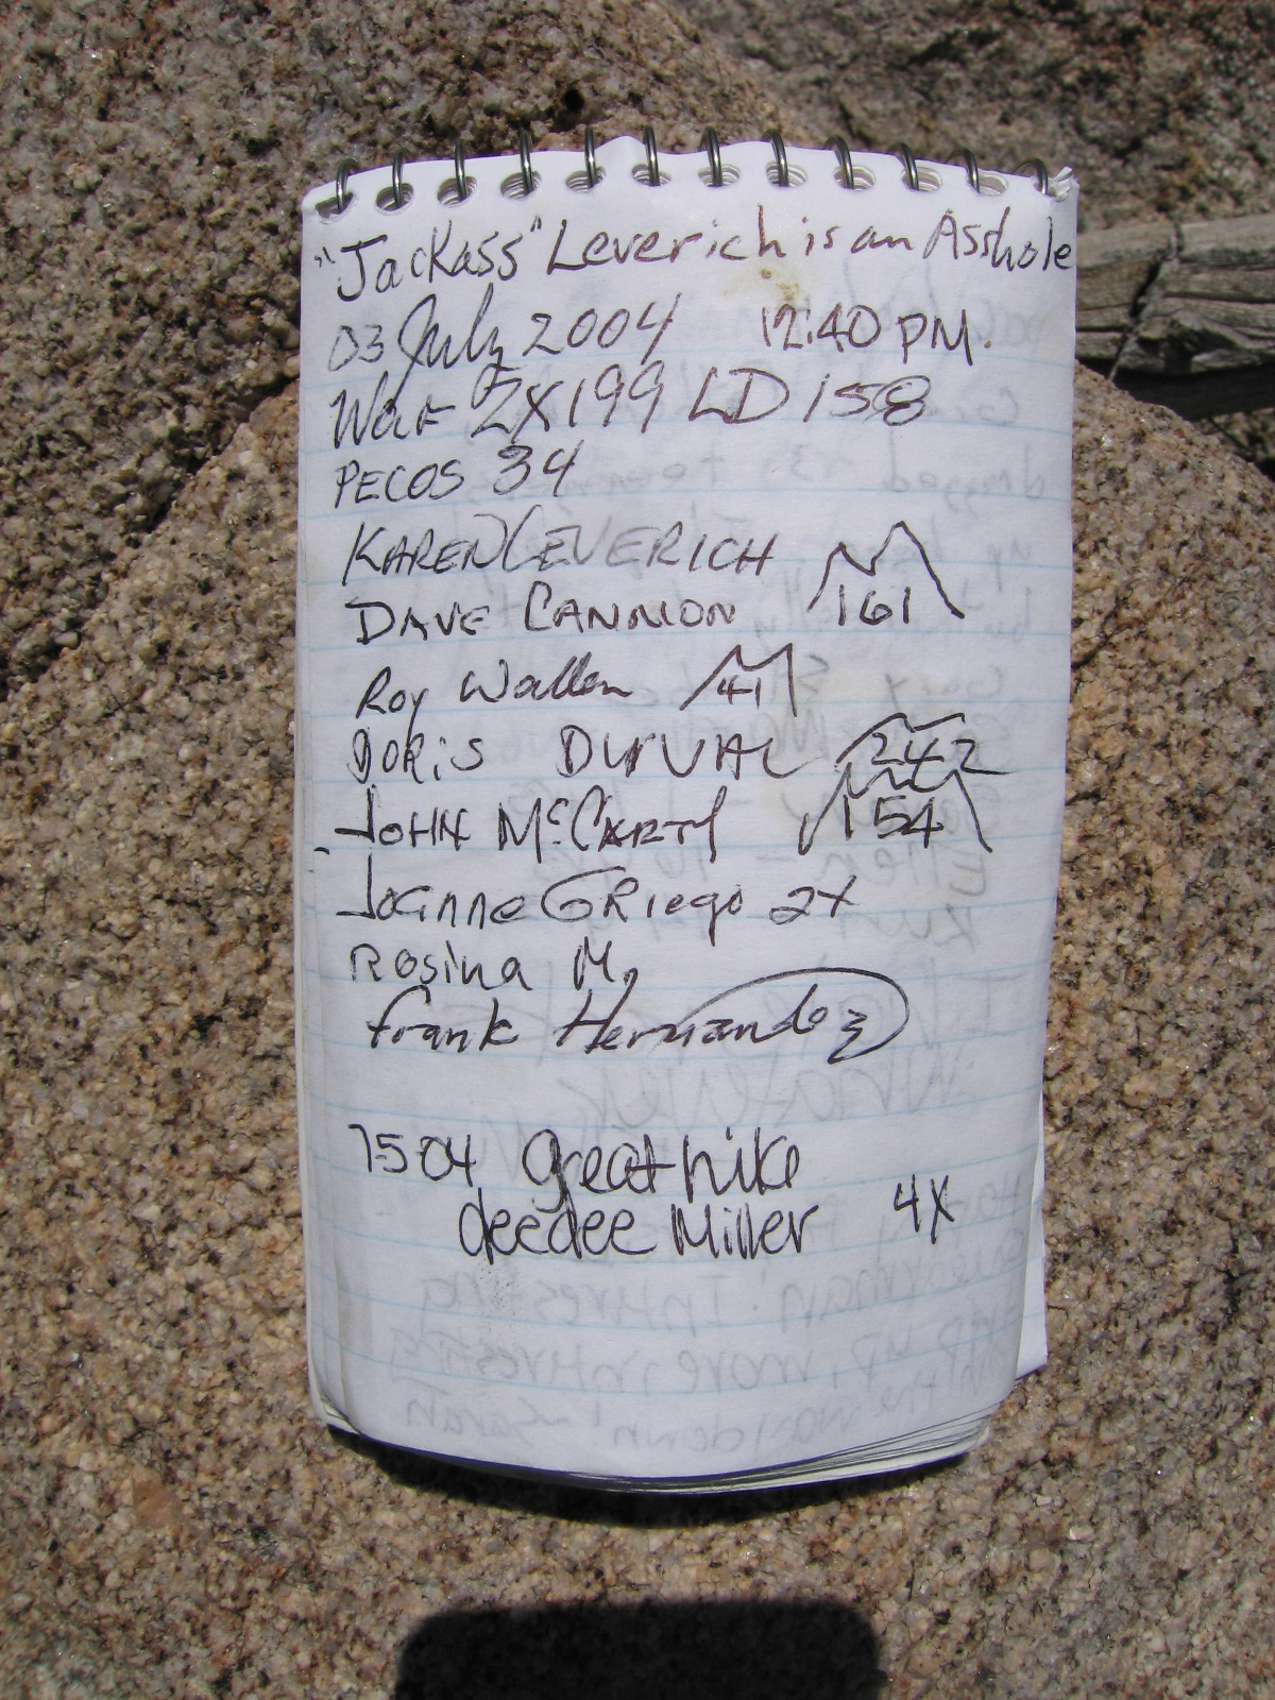 "Jackass" Leverich is an Asshole
03 July 2004 12:40 PM.
2X199 LD 158
PECOS 34
KAREN LEVERICH
DAVE CANNON 161
Roy Wallen 41
DORiS DUVAL 242
JOHN McCARTY 154
Joanne GRiego 2X
Rosina M.
frank Hernandez
7504 Great hike
deedee Miller 4X